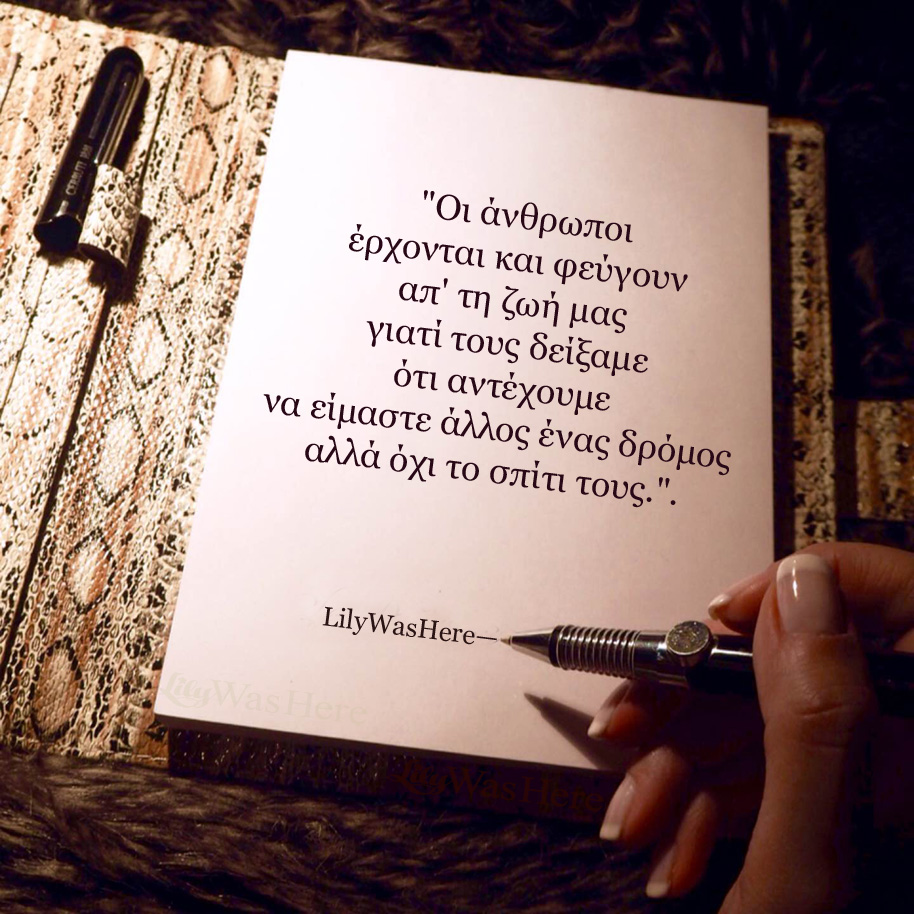 "Οι άνθρωποι
έρχονται και φεύγουν
απ' τη ζωή μας
γιατί τους δείξαμε
ότι αντέχουμε
να είμαστε άλλος ένας δρόμος
αλλά όχι το σπίτι τους.".
LilyWasHere—
LilyWasHere
LilyWasHere
CERRUTI 1881